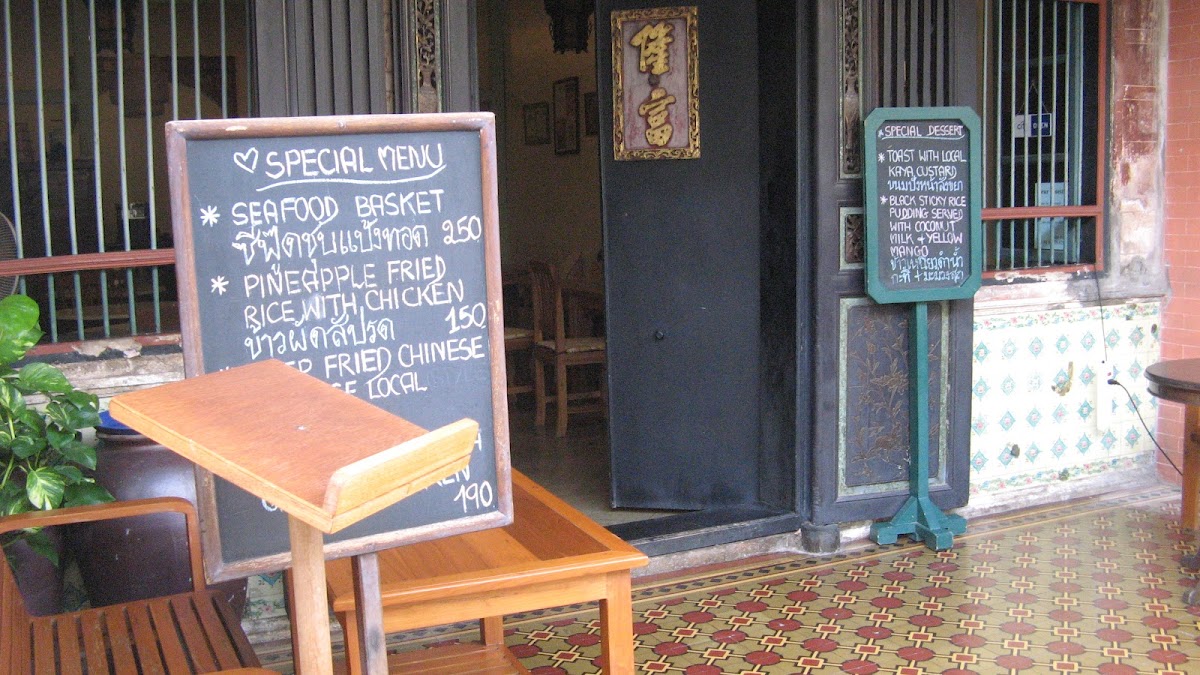 ♡ SPECIAL MENU
* SEAFOOD BASKET
ซีฟู๊ดชุบแป้งทอด 250
* PINEAPPLE FRIED
RICE WITH CHICKEN
ข้าวผัดสัปรด 150
FRIED CHINESE
LOCAL
190
隆
富
SPECIAL DESSERT
* TOAST WITH LOCAL
KAYA CUSTARD
ขนมปังหน้าสังขยา
* BLACK STICKY RICE
PUDDING SERVED
WITH COCONUT
MILK & YELLOW
MANGO
ข้าวเหนียวดำน้ำ
กะทิ + มะม่วงสุก